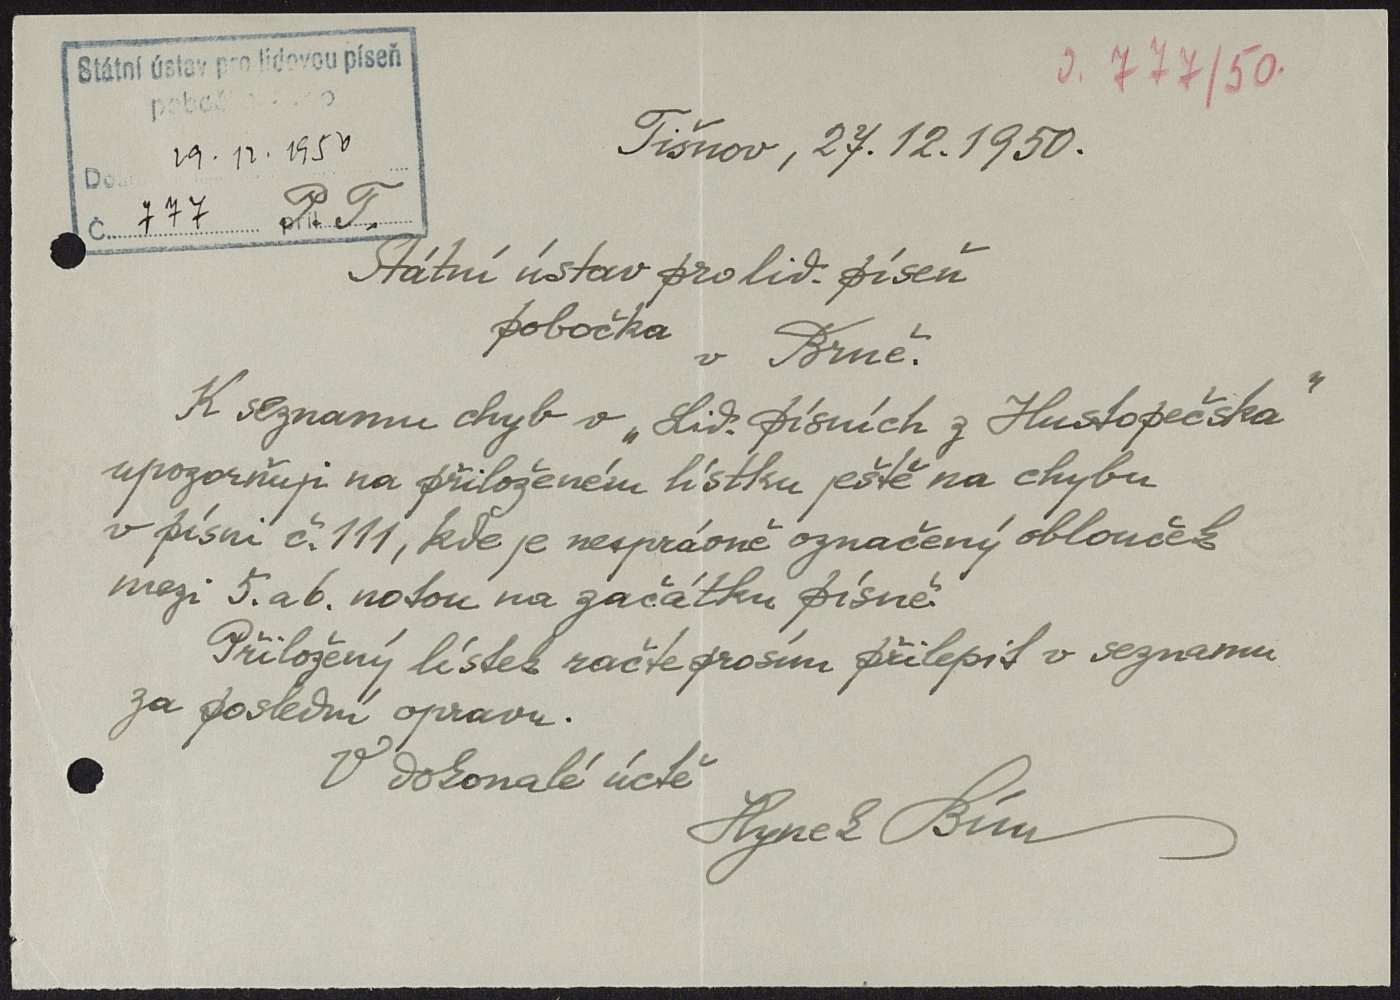 Státní ústav pro lidovou píseň
29. 12. 1950
Č. 777 příl. P. T.
J. 777/50.
Tišnov, 27. 12. 1950.
Státní ústav pro lid. píseň
pobočka
v Brně.
K seznamu chyb v „Lid. písních z Hustopečska"
upozorňuji na přiloženém lístku ještě na chybu
v písni č. 111, kde je nesprávně označený oblouček
mezi 5. a 6. notou na začátku písně.
Přiložený lístek račte prosím přilepit v seznamu
za poslední opravu.
V dokonalé úctě
Hynek Bím